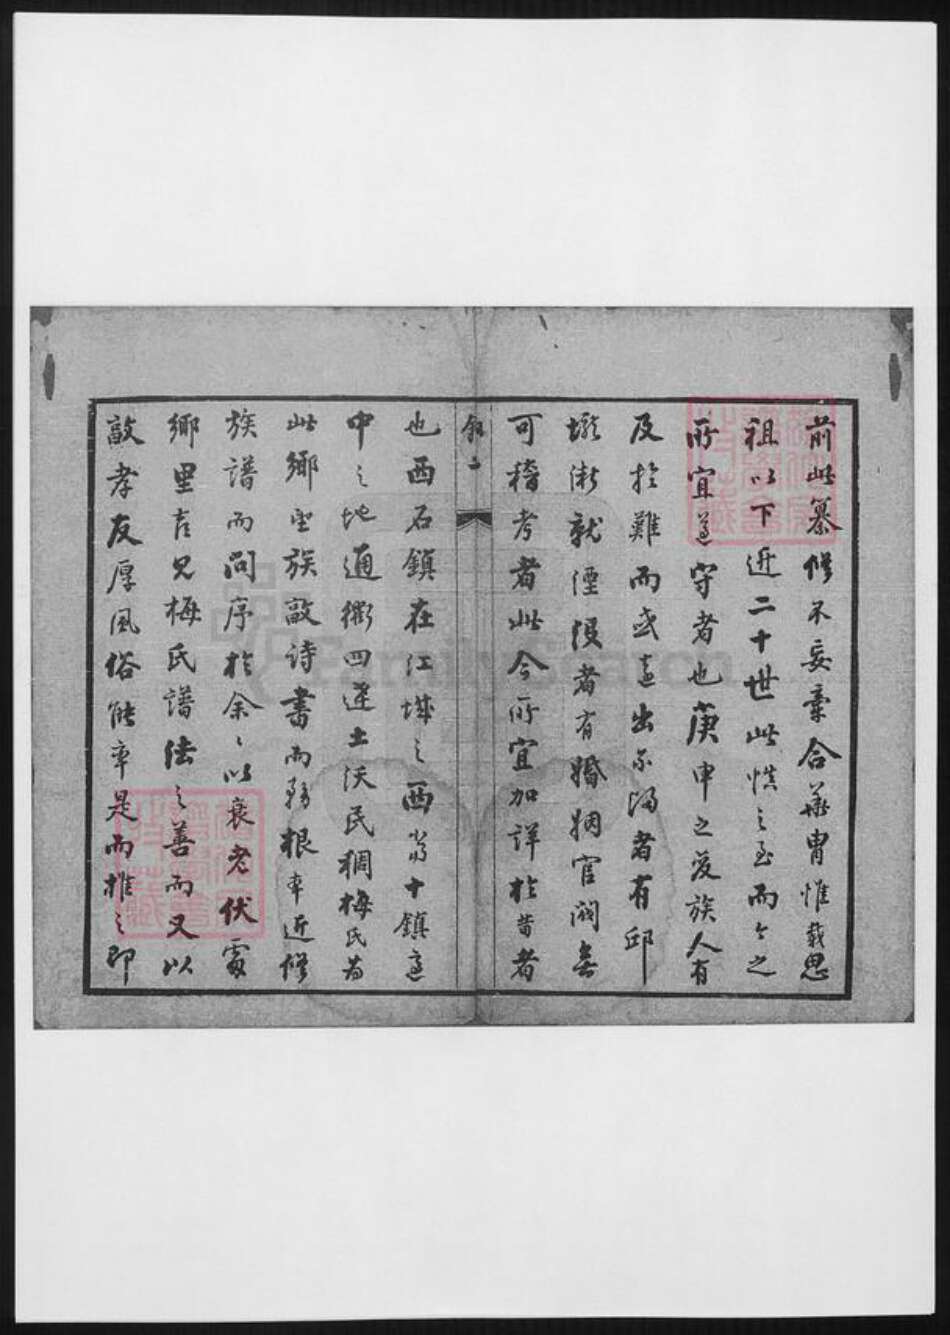 前此纂修不妄牽合華胄惟裁思
祖以下近二十世此慎之至而今之
所宜遵守者也庚申之變族人有
及於難而或遠出不歸者有邱
壠漸就湮沒者有婚姻官閥無
可稽考者此今所宜加詳於昔者
敘 二
也西石鎮在江城之西當十鎮適
中之地通衢四達土沃民稠梅氏為
此鄉望族敦詩書而務根本近修
族譜而問序於余余以衰老伏處
鄉里喜見梅氏譜法之善而又以
敦孝友厚風俗能率是而推之即
FamilySearch